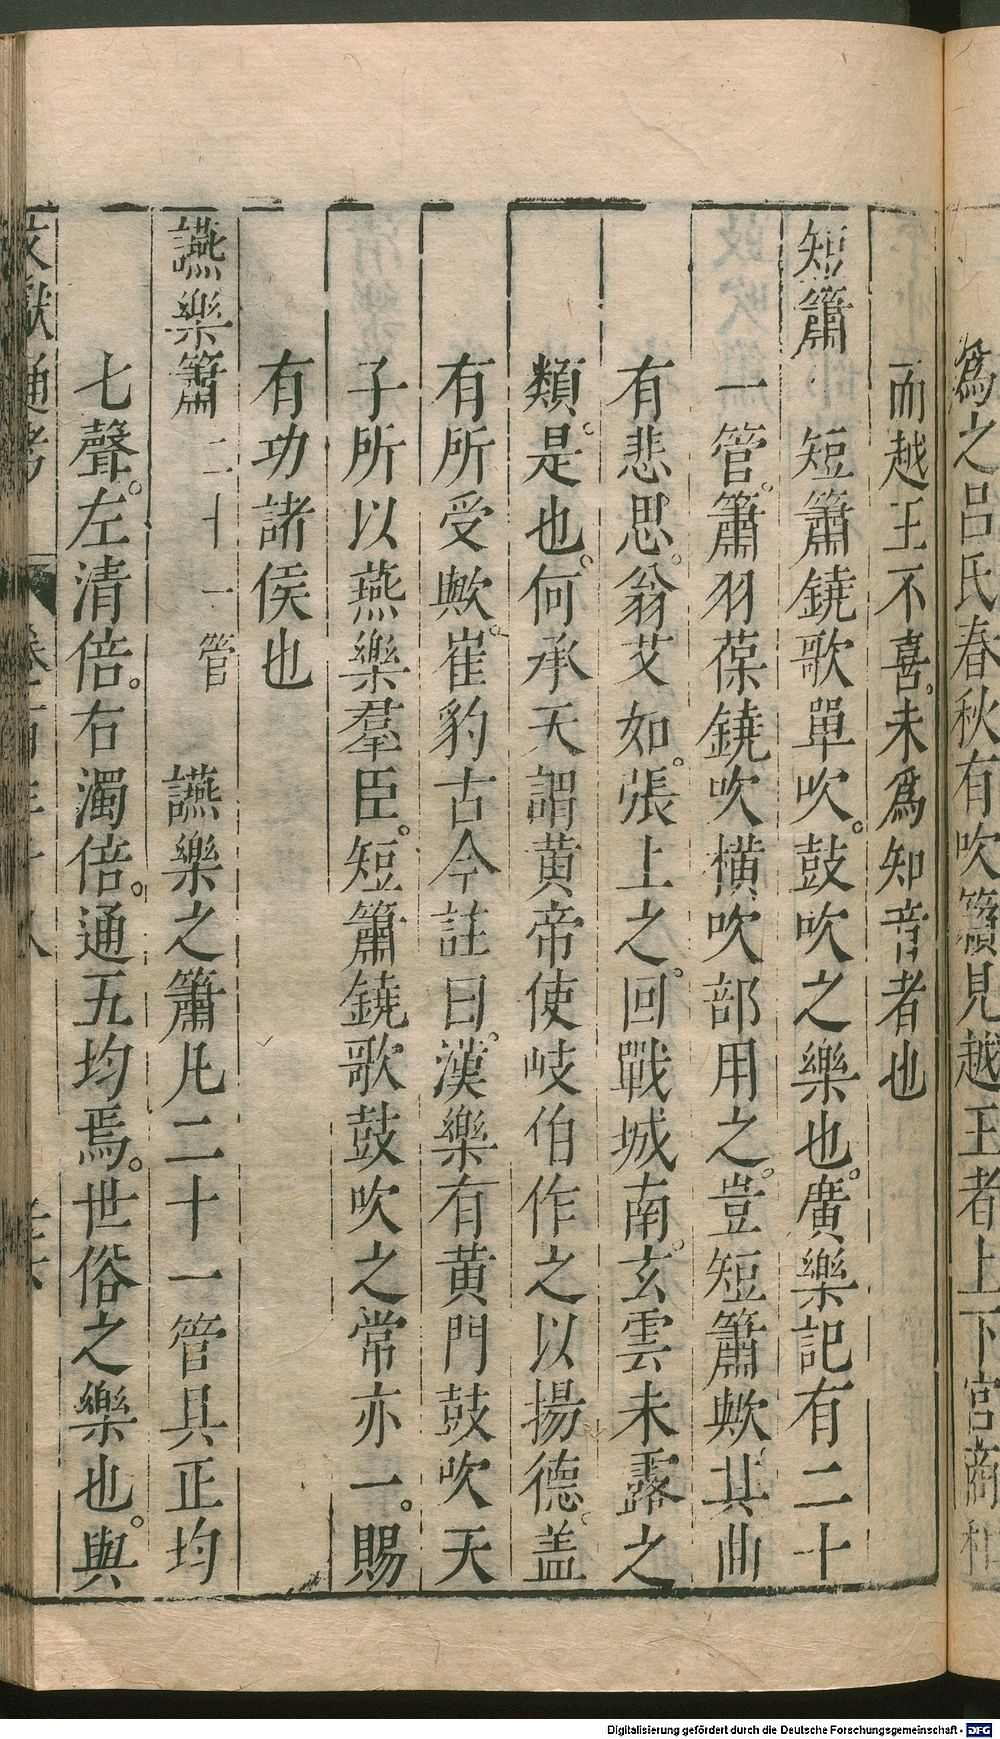 爲之呂氏春秋有吹籟見越王者上下宮商和
而越王不喜。未爲知音者也
短簫 短簫鐃歌單吹。鼓吹之樂也。廣樂記有二十
一管。簫羽葆鐃吹横吹部用之。豈短簫歟其曲
有悲思。翁艾如。張上之。回戰城南。玄雲未露之
類。是也。何承天謂黄帝使岐伯作之以揚德。蓋
有所受歟。崔豹古今註曰。漢樂有黄門鼓吹天
子所以燕樂羣臣。短簫鐃歌鼓吹之常亦一。賜
有功諸侯也
讌樂簫 二十一管 讌樂之簫凡二十一管具正均
七聲。左清倍。右濁倍。通五均焉。世俗之樂也。與
文獻通考 卷一百三十八
Digitalisierung gefördert durch die Deutsche Forschungsgemeinschaft - DFG